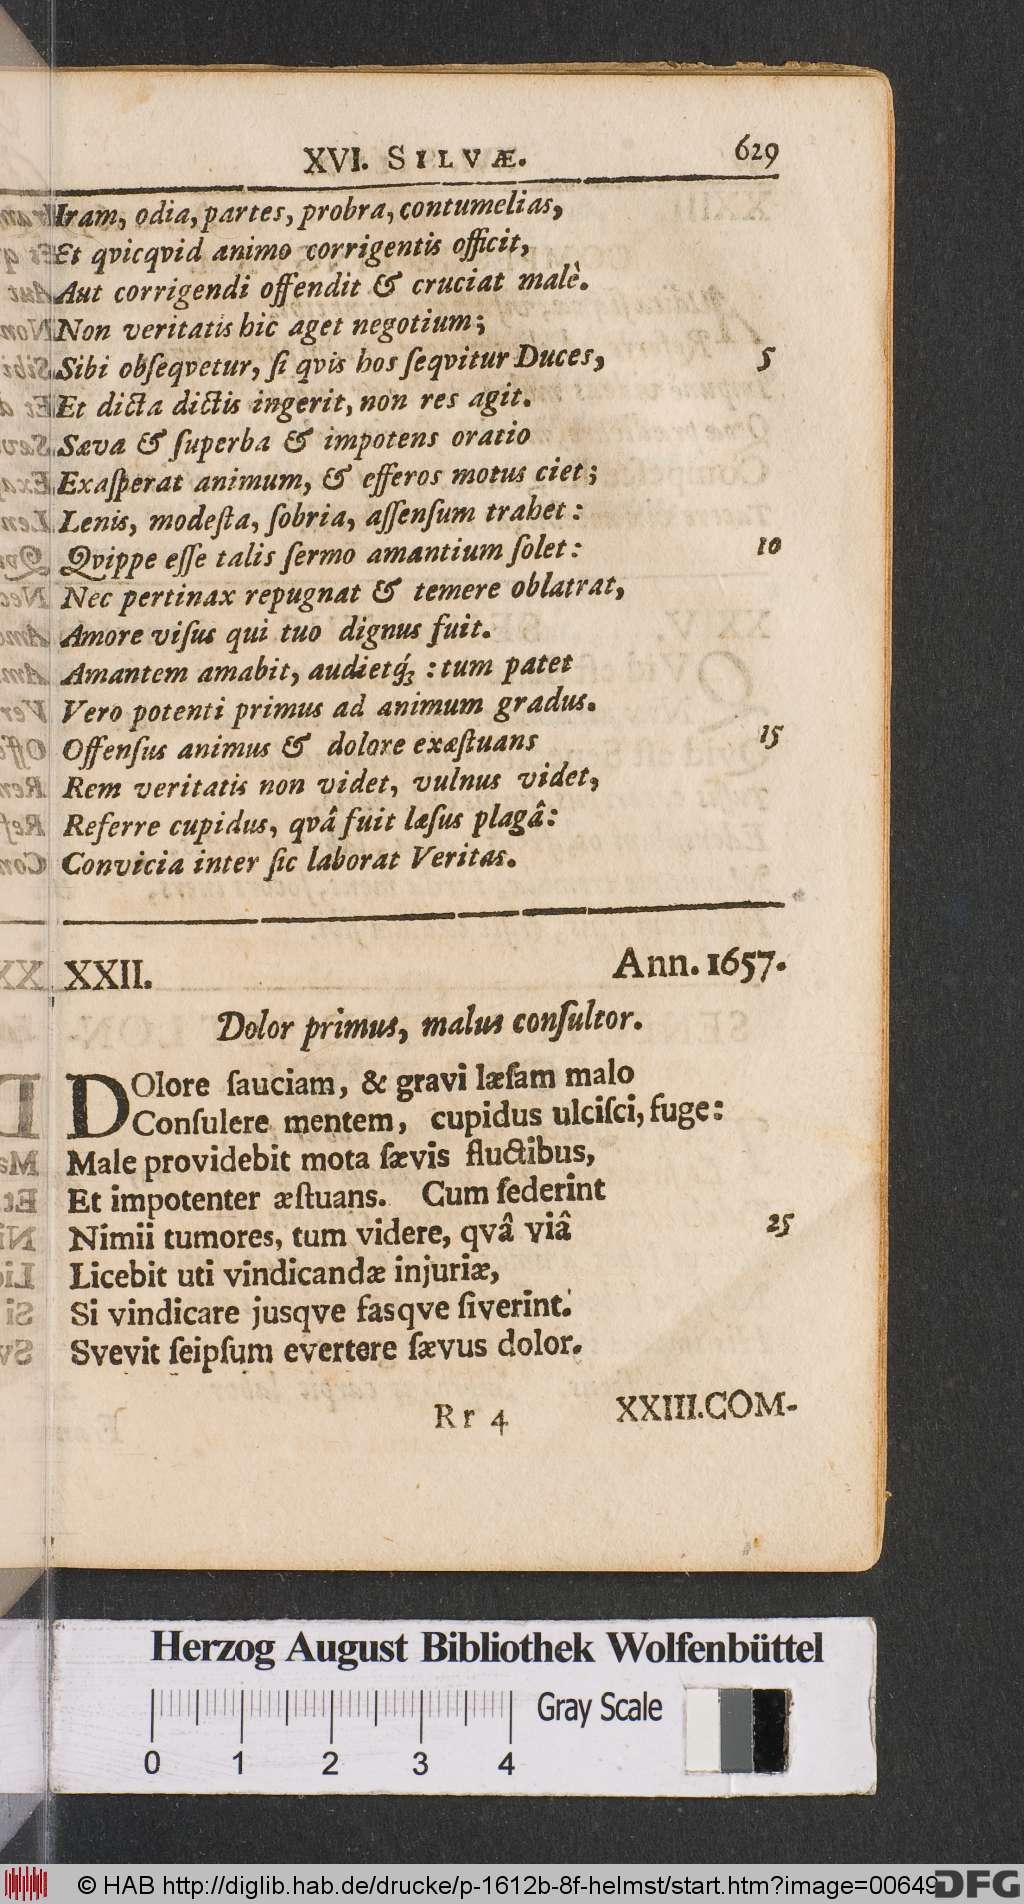 XVI. SILVÆ. 629
Iram, odia, partes, probra, contumelias,
Et qvicqvid animo corrigentis officit,
Aut corrigendi offendit & cruciat malè.
Non veritatis hic aget negotium;
Sibi obſeqvetur, ſi qvis hos ſeqvitur Duces, 5
Et dicta dictis ingerit, non res agit.
Sæva & ſuperba & impotens oratio
Exaſperat animum, & efferos motus ciet;
Lenis, modeſta, ſobria, aſſenſum trahet:
Qvippe eſſe talis ſermo amantium ſolet: 10
Nec pertinax repugnat & temere oblatrat,
Amore viſus qui tuo dignus fuit.
Amantem amabit, audietq́; : tum patet
Vero potenti primus ad animum gradus.
Offenſus animus & dolore exæſtuans 15
Rem veritatis non videt, vulnus videt,
Referre cupidus, qvâ fuit læſus plagâ:
Convicia inter ſic laborat Veritas.
XXII. Ann. 1657.
Dolor primus, malus conſultor.
DOlore ſauciam, & gravi læſam malo
Conſulere mentem, cupidus ulciſci, fuge:
Male providebit mota ſævis fluctibus,
Et impotenter æſtuans. Cum ſederint
Nimii tumores, tum videre, qvâ viâ 25
Licebit uti vindicandæ injuriæ,
Si vindicare jusqve fasqve ſiverint.
Svevit ſeipſum evertere ſævus dolor.
Rr 4 XXIII.COM-
Herzog August Bibliothek Wolfenbüttel
Gray Scale
0 1 2 3 4
© HAB http://diglib.hab.de/drucke/p-1612b-8f-helmst/start.htm?image=00649
DFG